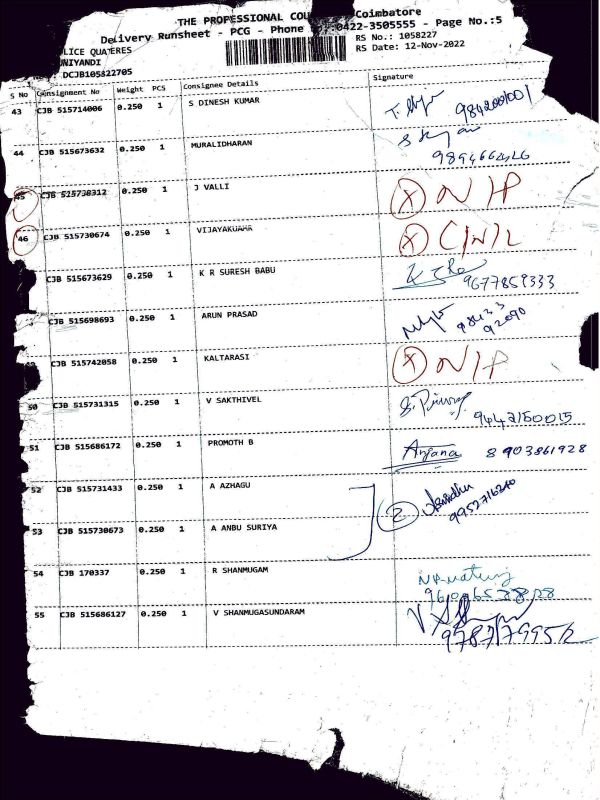 THE PROFESSIONAL COU Coimbatore
Delivery Runsheet - PCG - Phone 0422-3505555 - Page No.:5
OLICE QUATERES
RS No.: 1058227
UNIYANDI
RS Date: 12-Nov-2022
DCJB105822705
S No Consignment No Weight PCS Consignee Details Signature
43 CJB 515714006 0.250 1 S DINESH KUMAR
44 CJB 515673632 0.250 1 MURALIDHARAN
9894664426
45 CJB 515738312 0.250 1 J VALLI X N/P
46 CJB 515730674 0.250 1 VIJAYAKUAHR X C/N/L
CJB 515673629 0.250 1 K R SURESH BABU 9677859333
CJB 515698693 0.250 1 ARUN PRASAD 98433
92090
CJB 515742058 0.250 1 KALTARASI X N/P
50 CJB 515731315 0.250 1 V SAKTHIVEL
9442150015
51 CJB 515686172 0.250 1 PROMOTH B Anjana 8903861928
52 CJB 515731433 0.250 1 A AZHAGU 2
53 CJB 515730673 0.250 1 A ANBU SURIYA
54 CJB 170337 0.250 1 R SHANMUGAM
55 CJB 515686127 0.250 1 V SHANMUGASUNDARAM